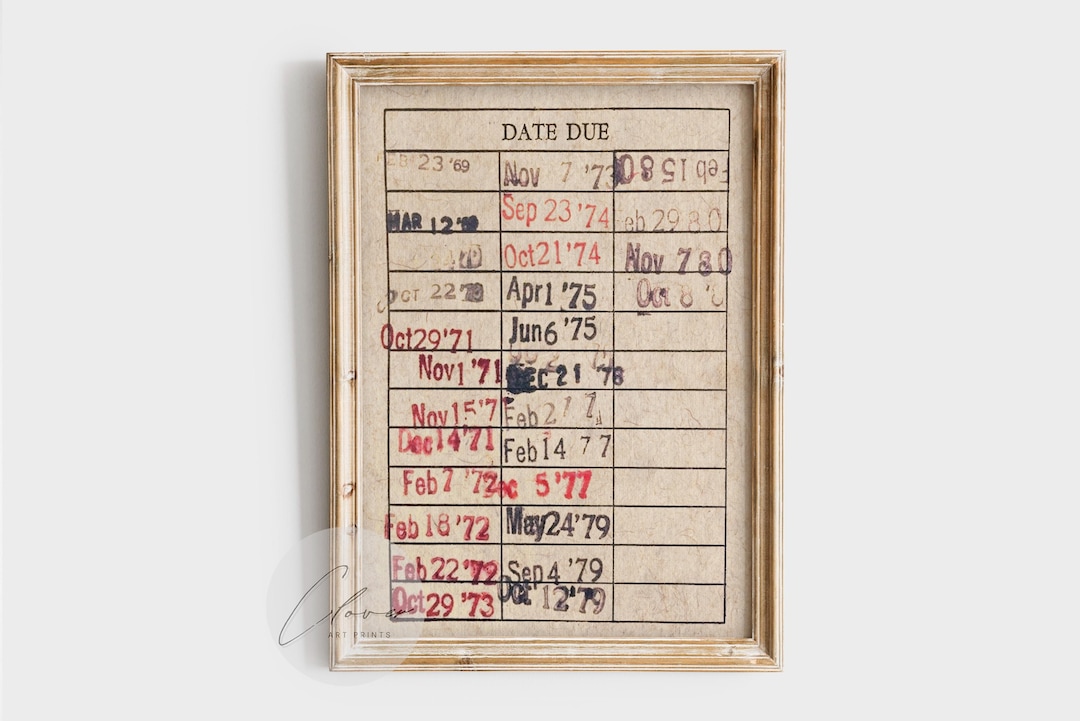 DATE DUE
FEB 23 '69
MAR 12 '69
OCT 22 '70
Oct29'71
Nov1'71
Nov15'7
Dec14'71
Feb7 '72
Feb18'72
Feb22'72
Oct29 '73
Nov 7 '73
Sep 23 '74
Oct21'74
Apr1 '75
Jun6 '75
DEC 21 '78
Feb2 7 7
Feb14 7 7
Dec 5'77
May24'79
Sep4 '79
Oct 12'79
Feb 15 8 0
Feb 29 8 0
Nov 7 8 0
Oct 8 '8
Clover
ART PRINTS